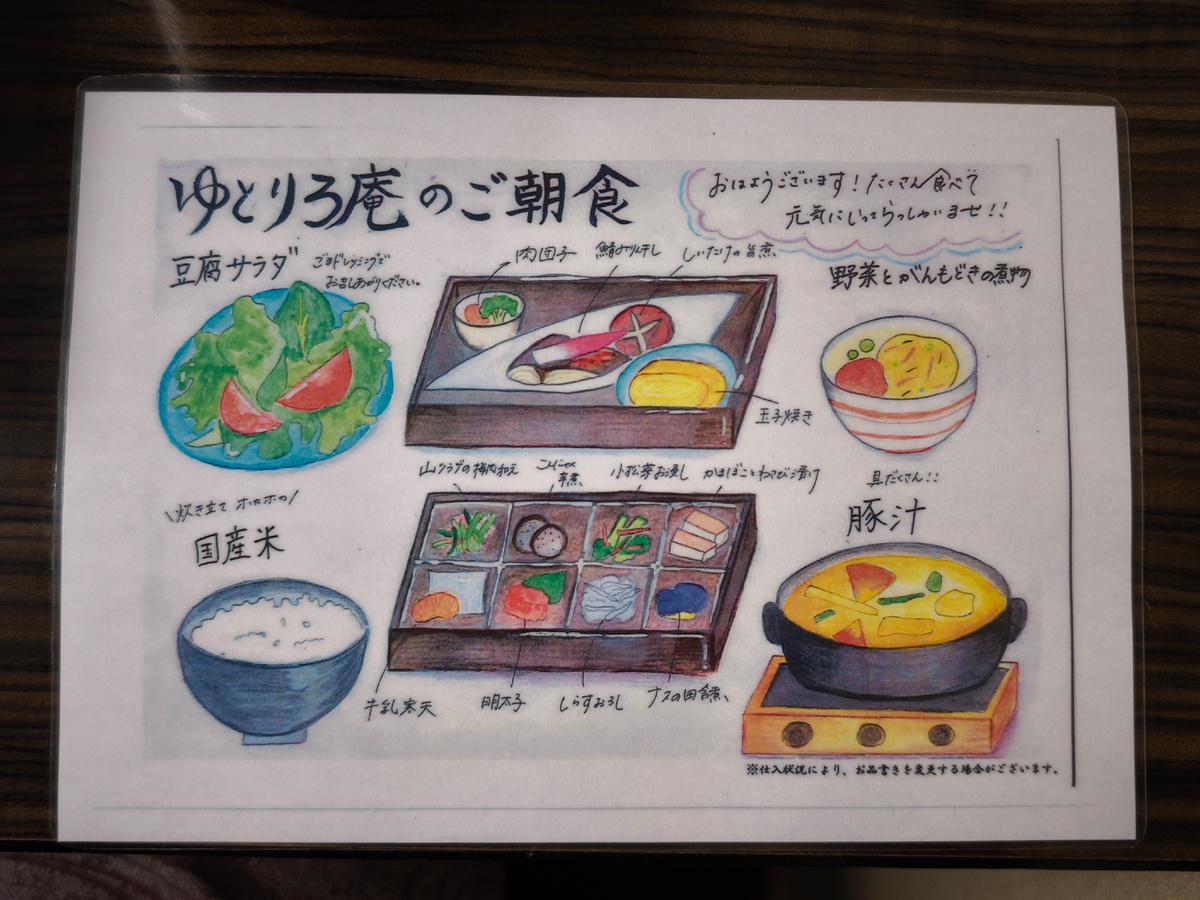 ゆとりろ庵のご朝食
おはようございます！たくさん食べて
元気にいってらっしゃいませ！！
豆腐サラダ
ごまドレッシングで
お召しあがりください。
肉団子
鯖みりん干し
しいたけの旨煮
玉子焼き
野菜とがんもどきの煮物
\炊き立て ホカホカ/
国産米
山クラゲの梅肉和え
こんにゃく
辛煮
小松菜お浸し
かまぼことわさび漬け
牛乳寒天
明太子
しらすおろし
ナスの田舎煮
具だくさん！！
豚汁
※仕入状況により、お品書きを変更する場合がございます。